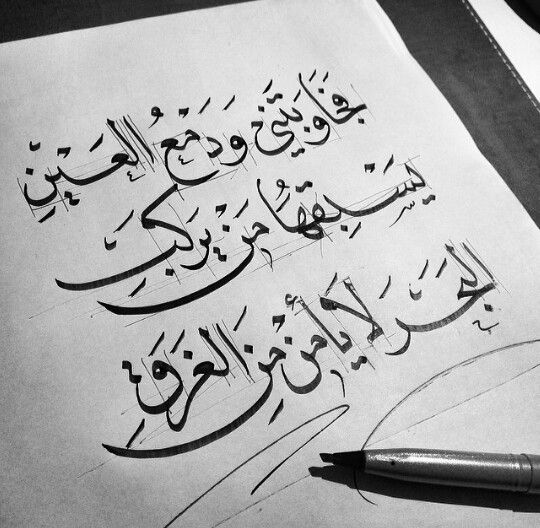 فَجَاوَبَتْنِي وَدَمْعُ الْعَيْنِ
يَسْبِقُهَا مَنْ يَرْكَبِ
الْبَحْرَ لَا يَأْمَنْ مِنَ الْغَرَقِ